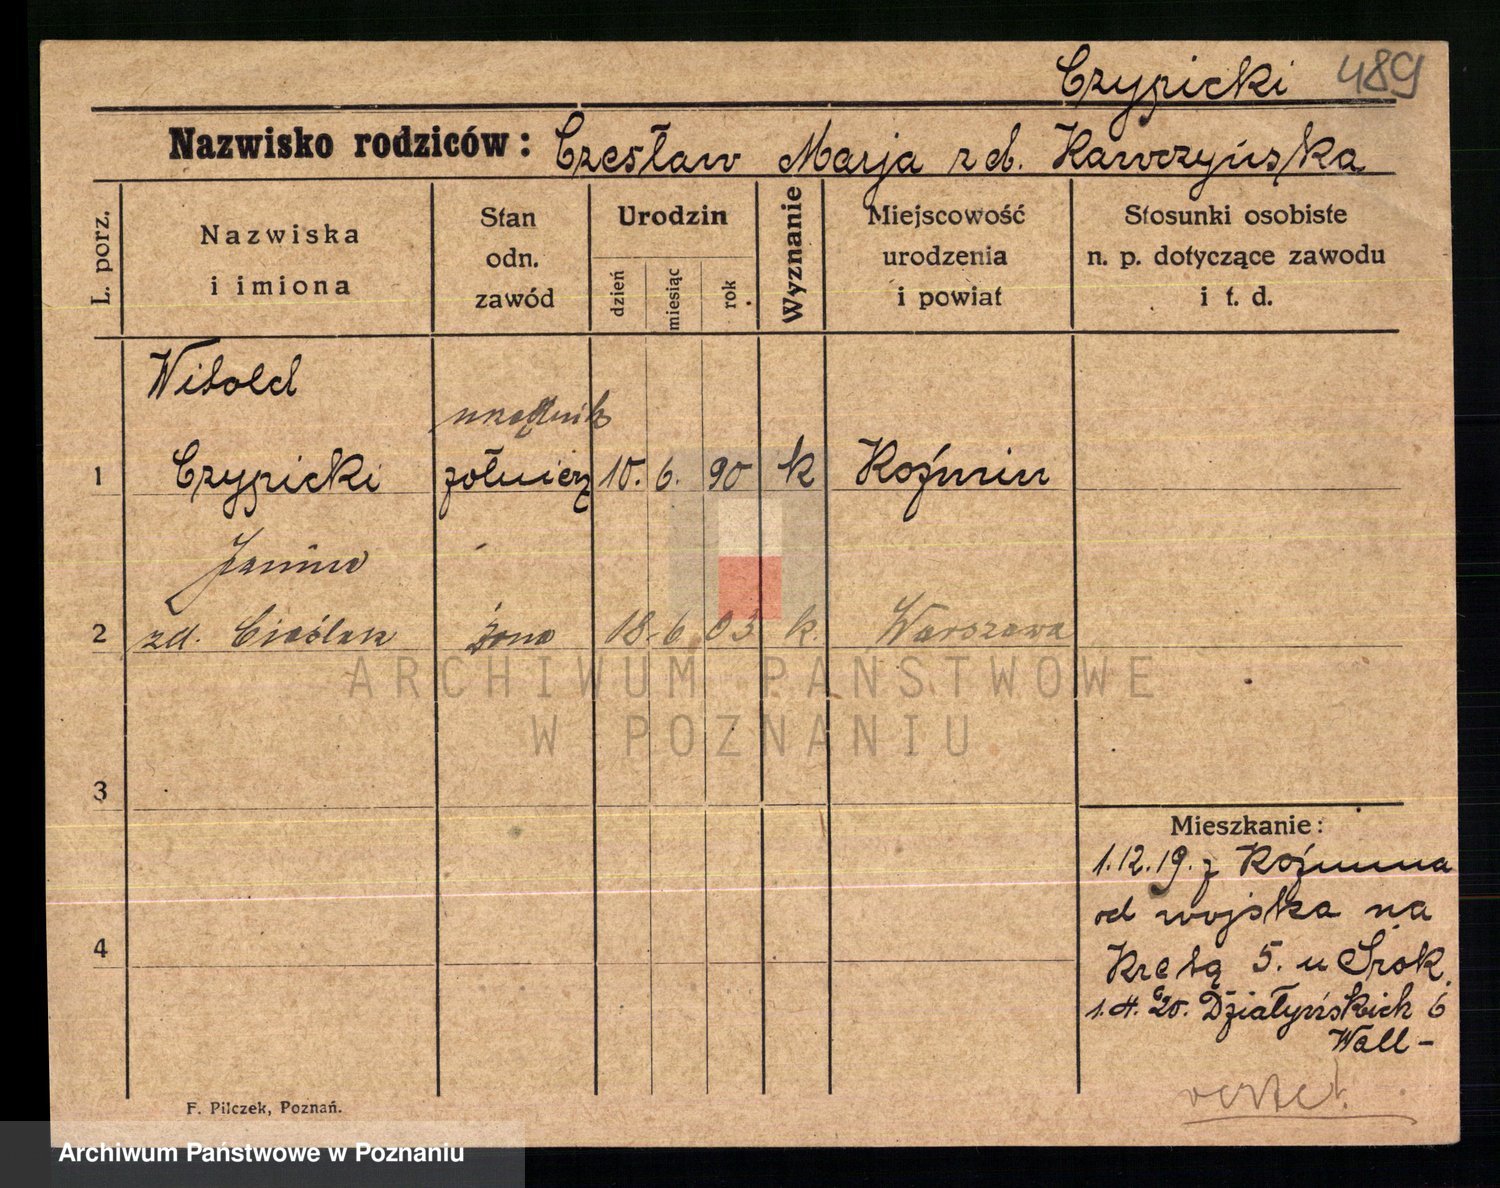 Czypicki 489
Nazwisko rodziców: Czesław Marja z d. Kawczyńska
L. porz.
Nazwiska
i imiona
Stan
odn.
zawód
Urodzin
dzień
miesiąc
rok
Wyznanie
Miejscowość
urodzenia
i powiat
Stosunki osobiste
n. p. dotyczące zawodu
i t. d.
Witold
urzędnik
1 Czypicki żołnierz 10. 6. 90 k Koźmin
Janina
2 zd. Cieślak żona 18. 6 03 k. Warszawa
ARCHIWUM PAŃSTWOWE
W POZNANIU
3
Mieszkanie:
1.12.19. z Koźmina
od wojska na
4
Kretą 5. u Srok.
20. Działyńskich 6
Wall-
F. Pilczek, Poznań.
Archiwum Państwowe w Poznaniu